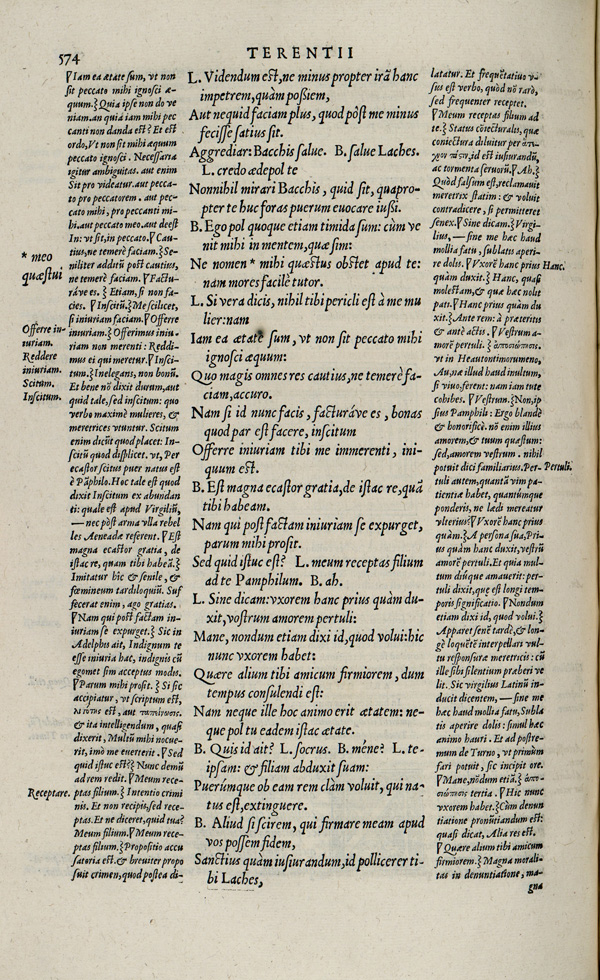 574
TERENTII
L. Videndum est, ne minus propter irã hanc
impetrem, quàm possiem,
Aut nequid faciam plus, quod pòst me minus
fecisse satius sit.
Aggrediar: Bacchis salue. B. salue Laches.
L. credo ædepol te
Nonnihil mirari Bacchis, quid sit, quapro-
pter te huc foras puerum euocare iussi.
B. Ego pol quoque etiam timida sum: cùm ve
nit mihi in mentem, quæ sim:
Ne nomen * mihi quæstus obstet apud te:
nam mores facilè tutor.
L. Si vera dicis, nihil tibi pericli est à me mu
lier: nam
Iam ea ætate sum, vt non sit peccato mihi
ignosci æquum:
Quo magis omnes res cautius, ne temerè fa-
ciam, accuro.
Nam si id nunc facis, facturáve es, bonas
quod par est facere, inscitum
Offerre iniuriam tibi me immerenti, ini-
quum est.
B. Est magna ecastor gratia, de istac re, quã
tibi habeam.
Nam qui post factam iniuriam se expurget,
parum mihi prosit.
Sed quid istuc est? L. meum receptas filium
ad te Pamphilum. B. ah.
L. Sine dicam: vxorem hanc prius quàm du-
xit, vostrum amorem pertuli:
Mane, nondum etiam dixi id, quod volui: hic
nunc vxorem habet:
Quære alium tibi amicum firmiorem, dum
tempus consulendi est:
Nam neque ille hoc animo erit ætatem: ne-
que pol tu eadem istac ætate.
B. Quis id ait? L. socrus. B. méne? L. te-
ipsam: & filiam abduxit suam:
Puerúmque ob eam rem clàm voluit, qui na-
tus est, extinguere.
B. Aliud si scirem, qui firmare meam apud
vos possem fidem,
Sanctius quàm iusiurandum, id pollicerer ti-
bi Laches,
* meo
quæstui
Offerre in-
iuriam.
Reddere
iniuriam.
Scitum.
Inscitum.
Receptare.
Iam ea ætate sum, vt non
sit peccato mihi ignosci æ-
quum.} Quia ipse non do ve
niam. an quia iam mihi pec
canti non danda est? Et est
ordo, Vt non sit mihi æquum
peccato ignosci. Necessaria
igitur ambiguitas. aut enim
Sit pro videatur. aut pecca-
to pro peccatorem. aut pec-
cato mihi, pro peccanti mi-
hi. aut peccato meo. aut deest
In: vt sit, in peccato. Cau-
tius, ne temerè faciam.} Se-
militer addit̃ post cautius,
ne temerè faciam. Factu-
ráve es. } Etiam, si non fa-
cies. Inscitũ.} Me scilicet,
si iniuriam faciam. Offerre
iniuriam.} Offerimus iniu-
riam non merenti: Reddi-
mus ei qui meretur. Insci-
tum.} Inelegans, non bonũ.
Et bene nõ dixit durum, aut
quid tale, sed inscitum: quo
verbo maximè mulieres, &
meretrices vtuntur. Scitum
enim dicũt quod placet: In-
scitũ quod displicet. vt, Per
ecastor scitus puer natus est
è Pãphilo. Hoc tale est quod
dixit Inscitum ex abundan
ti: quale est apud Virgiliũ,
— nec post arma vlla rebel
les Aeneadæ referent. Est
magna ecastor gratia, de
istac re, quam tibi habeã.}
Imitatur hic & senile, &
fœmineum tardiloquiũ. Suf
fecerat enim, ago gratias.
Nam qui post factam in-
iuriam se expurget.} Sic in
Adelphis ait, Indignum te
esse iniuria hac, indignis cũ
egomet sim acceptus modis.
Parum mihi prosit. } Si sic
accipiatur, vt scriptum est,
& ita intelligendum, quasi
dixerit, Multũ mihi nocue-
rit, imò me euerterit. Sed
quid istuc est?} Nunc demũ
ad rem redit. Meum rece-
ptas filium.} Intentio crimi
nis. Et non recipis, sed rece-
ptas. Et ne diceret, quid tua?
Meum filium. Meum rece-
ptas filium.} Propositio accu
satoria est. & breuiter propo
suit crimen, quod postea di-
latatur. Et frequẽtatiuo vs-
sus est verbo, quòd nõ rarò,
sed frequenter receptet.
Meum receptas filium ad
te.} Status coniecturalis, quæ
coniectura diluitur per
id est iusiurandũ,
ac tormenta seruorũ. Ah.}
Quòd falsum est, reclamauit
meretrix statim: & voluit
contradicere, si permitteret
senex. Sine dicam. Virgi-
lius, — sine me hæc haud
mollia fatu, sublatis aperi-
re dolis. Vxorẽ hanc prius
quàm duxit.} Hanc, quasi
molestam, & quæ hæc nolit
pati. Hanc prius quàm du
xit.} Ante rem: à præteritis
& antè actis. Vestrum a-
morẽ pertuli.}
vt in Heautontimorumeno,
Au, næ illud haud inultum,
si viuo, ferent: nam iam tute
cohibes. Vestrum.} Non, ip
sius Pamphili: Ergo blandè
& honorificè. nõ enim illius
amorem, & tuum quæstum:
sed, amorem vestrum. nihil
potuit dici familiarius. Per-
tuli autem, quantã vim pa-
tientiæ habet, quantúmque
ponderis, ne lædi mereatur
vlterius? Vxorẽ hanc prius
quàm.} A persona sua, Pri-
us quàm hanc duxit, vestrũ
amorẽ pertuli. Et quia mul-
tum diúque amauerit: per-
tuli dixit, que est longi tem-
poris significatio. Nondum
etiam dixi id, quod volui.}
Apparet senẽ tardè, & lon-
gè loquẽtẽ interpellari vul-
tu responsuræ meretricis: cũ
ille sibi silentium præberi ve
lit. Sic virgilius Latinũ in-
ducit dicentem, — sine me
hæc haud mollia fatu, Subla
tis aperire dolis: simul hæc
animo hauri. Et ad postre-
mum de Turno, vt primùm
fari potuit, sic incipit ore.
Mane, nõdum etiã.}
tertia. Hic nunc
vxorem habet.} Cùm denun
tiatione pronũtiandum est:
quasi dicat, Alia res est.
Quære alium tibi amicum
firmiorem.} Magna morali-
tas in denuntiatione, ma-
gna
Hanc.
Pertuli.